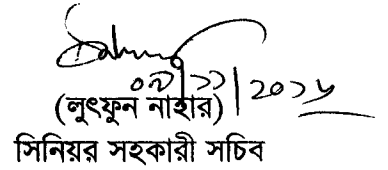 ০৯/১১/২০১৬
(লুৎফুন নাহার)
সিনিয়র সহকারী সচিব